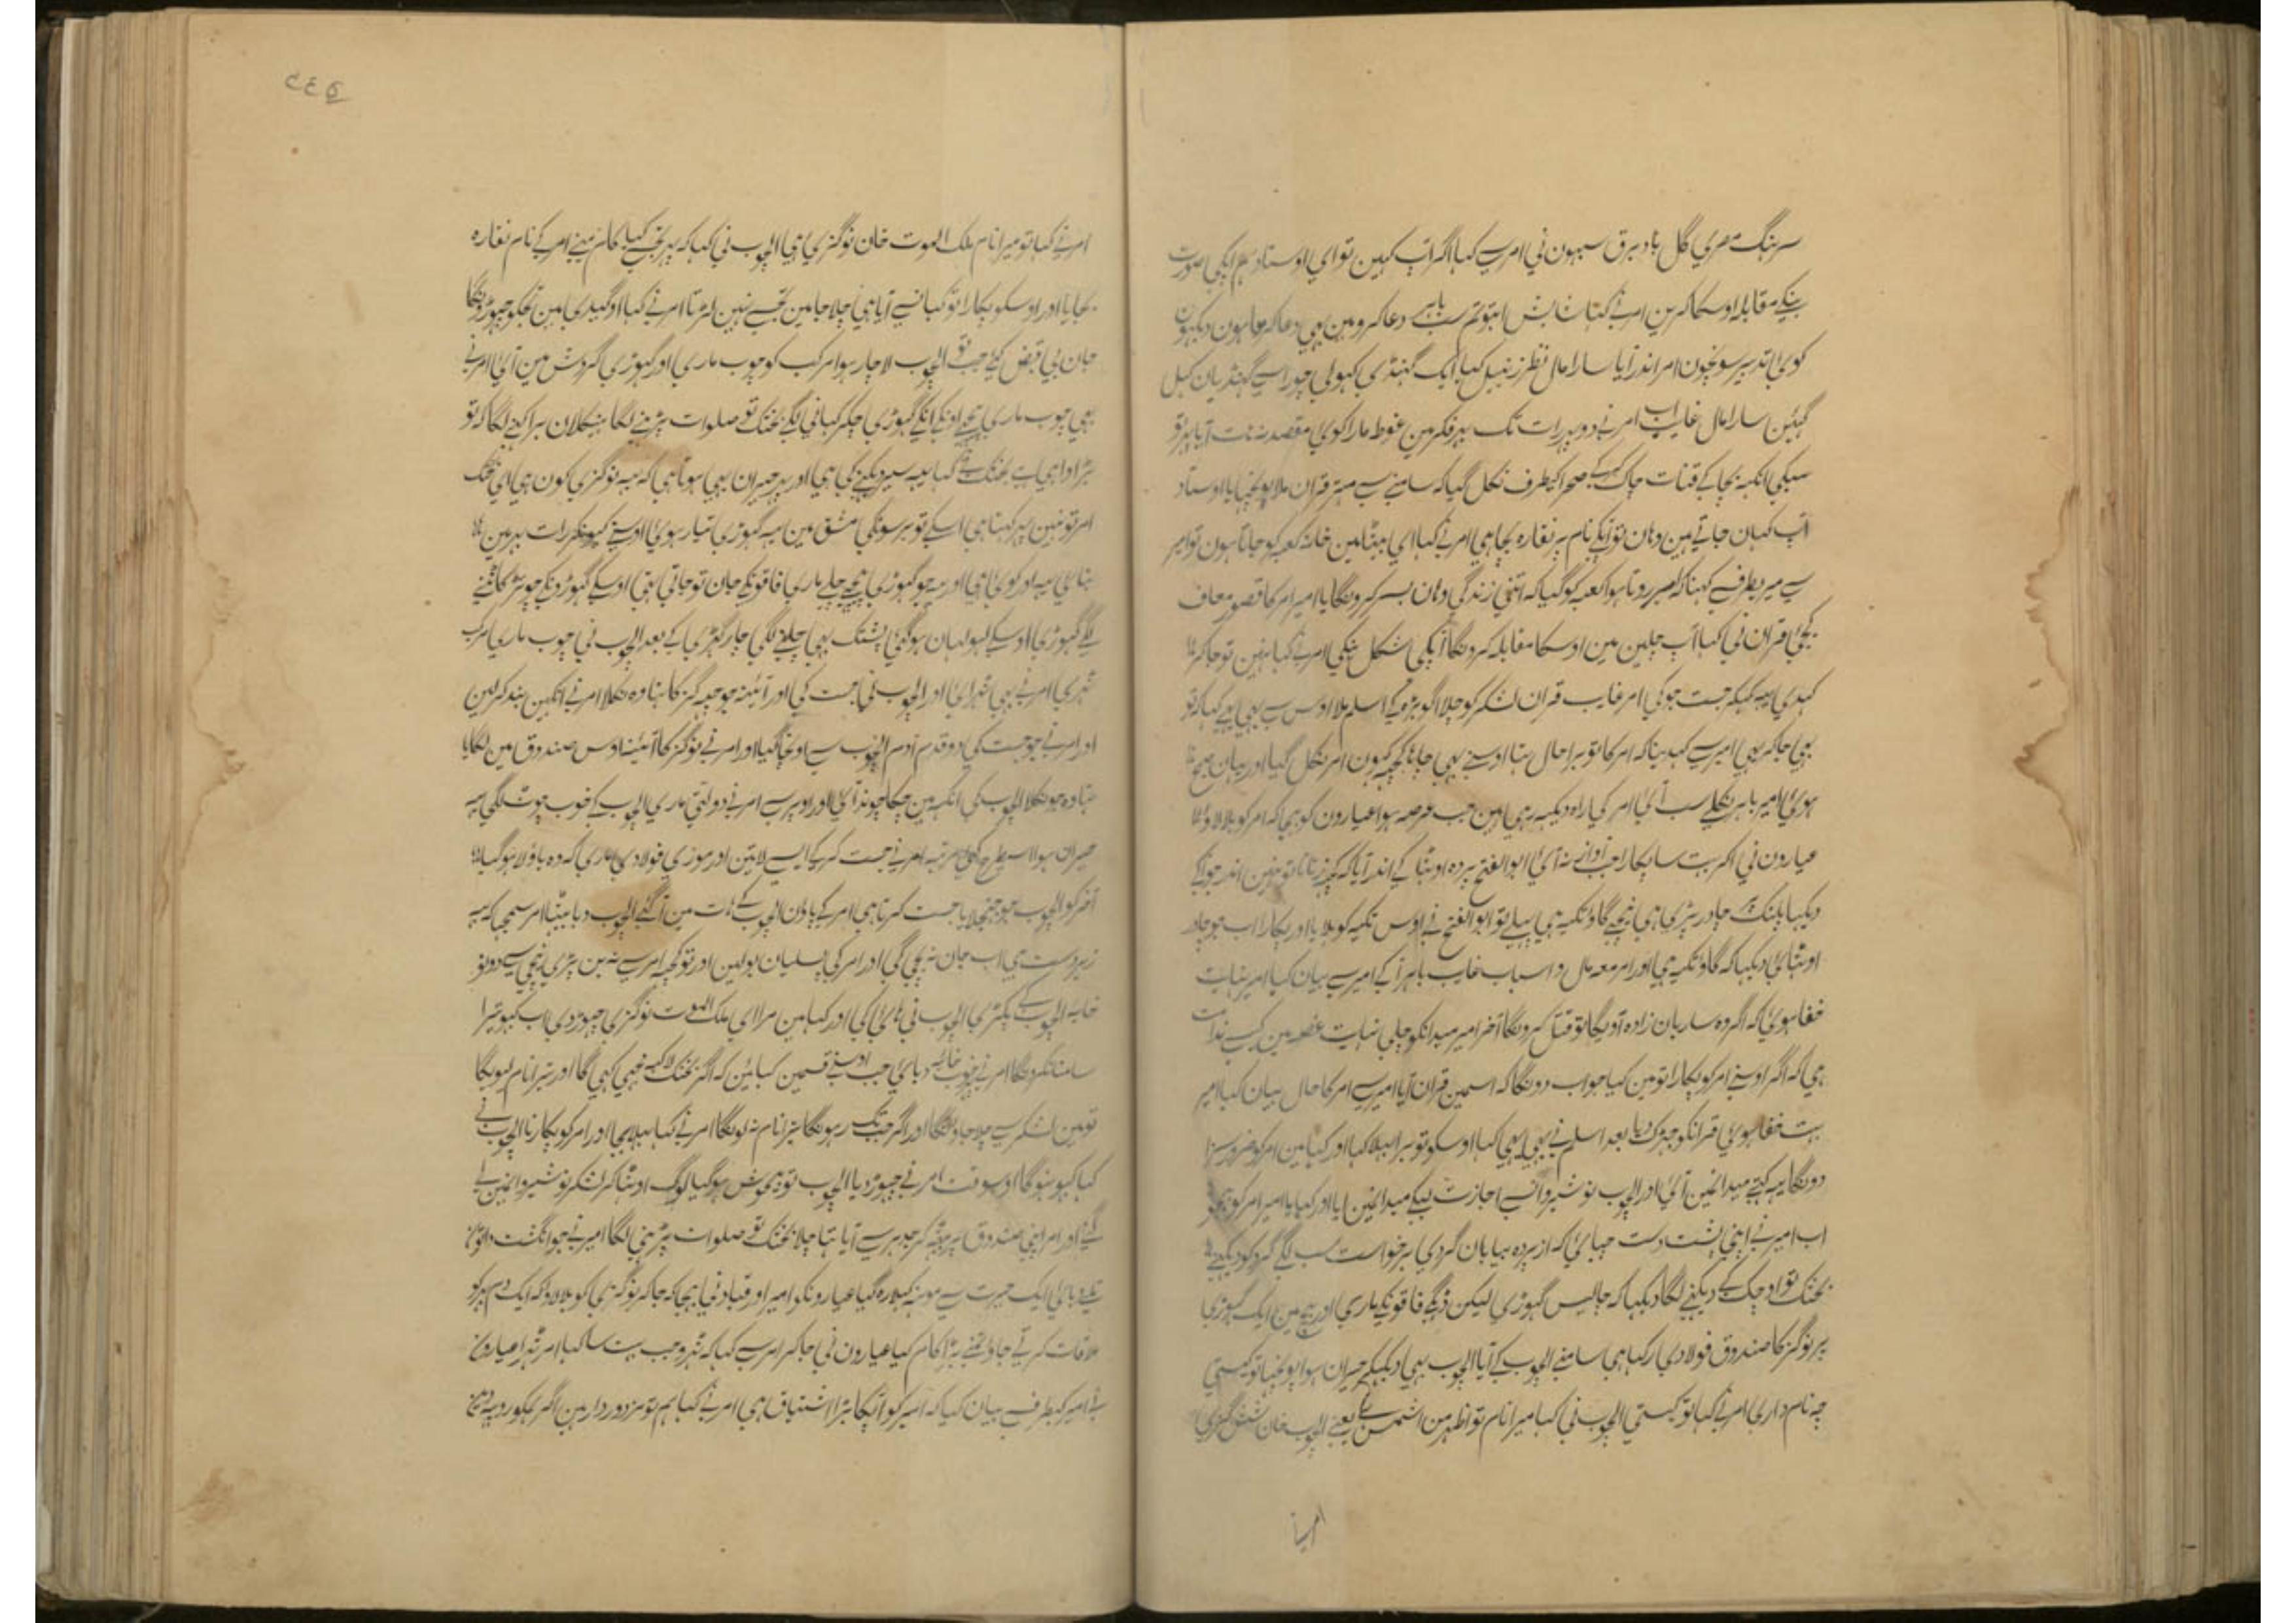 سرہنگ مصری گل باد برق سبہون نی امر سے کہا اگر آپ کہین تو ای اوستاد ہم آپکی صورت
بنکے مقابلہ اوسکا کرین امر نے کہا شاباش تم سب دعا کرو مین بہی دعا کرتا ہون دیکہون
کوئی تدبیر سونچون امر اندر آیا سارا مال نظر زنبیل کیا ایک گہنڈی کہولی چوراسے گہنڈیان کہل
گیئن سارا مال غایب امر نے دو پہر رات تک فکر مین غوطہ مارا کوئی مقصد نہ آیا پہر تو
سبکی انکہہ بچا کے قنات چاک کرکے صحرا کیطرف نکل گیا کہ سامنے سے مہتر قران ملا پوچہا یا اوستاد
آپ کہان جاتے ہین وہان تو آپکے نام پر نقارہ بجا ہی امر نے کہا ای بیٹا مین خانہ کعبہ کو جاتا ہون تو امیر
سے میریطرف سے کہنا کہ امر روتا ہوا کعبہ کو گیا کہ اتنی زندگی وہان بسر کرونگا یا امیر امر کا قصور معاف
کیجئ قران نی کہا آپ چلین مین اوسکا مقابلہ کرونگا آپکی شکل بنکی امر نے کہا نہین تو جا کر
کہدی یہہ کہکر جست جو کی امر غایب قران لشکر کو چلا آگو بڑہ کے اسلم ملا اوس سے بہی یہی کہا کہ تو
بہی جا کر یہی امیر سے کہدینا کہ امر کا تو برا حال تہا اوسنے بہی چاہا کچہہ کہون امر نکل گیا اور یہان صبح
ہوئی امیر باہر نکلے سب آئی امر کی راہ دیکہہ رہی ہین جب عرصہ ہوا عیارون کو بہیجا کہ امر کو بلا لاو
عیارون نی آکر بہت سا پکارا جب آواز نہ آئی ابوالفتح پردہ اوٹہا کے اندر آیا کہ کچہہ زنانا تو نہین اندر جو آکے
دیکہا پلنگ پر چادر پڑی ہی نیچے گاو تکیہ ہی پہلے تو ابوالفتح نے اوس تکیہ کو ہلایا اور پکارا اب جو چادر
اوٹہائی دیکہا کہ گاو تکیہ ہی اور امر معہ مال و اسباب غایب باہر آ کے امیر سے بیان کیا امیر نہایت
خفا ہوئی کہ اگر وہ ساربان زادہ آویگا تو قتل کرونگا آخر امیر میدانکو چلی نہایت غصہ مین
ہی کہ اگر اوسنے امر کو پکارا تو مین کیا جواب دونگا کہ اسمین قران آیا امیر سے امر کا حال بیان کیا امیر
بہت خفا ہوئی قرانکو جہڑک دیا بعد اسلم نے بہی یہی کہا اوسکو تو برا بہلا کہا اور کہا مین امر کو ضرور سزا
دونگا یہہ کہتے میدانمین آئی اور الچوب نوشیروانسے اجازت لیکے میدانمین آیا اور کہا یا امیر امر کو بہیجو
اب امیر نے اپنی پشت دست چبائی کہ از پردہ بیابان گردی برخواست سب لگے گرد کو دیکہنے
بختک تو اوچک کے دیکہنے لگا دیکہا کہ چالیس گہوڑی لیکن فاقونکے ماری اور بیچ مین ایک گہوڑی
پر نوگز کا صندوق فولادی رکہا ہی سامنے الچوب کے آیا الچوب بہی دیکہکے حیران ہوا پوچہا تو کیستی
چہ نام داری امر نے کہا تو کیستی الچوب نی کہا میرا نام تو اظہر من الشمس ہے یعنے الچوب خان شش گزی
امر نے
۴۴۵
امر نے کہا تو میرا نام ملک الموت خان نوگزی ہی الچوب نی کہا کہ پہر تجہسے کیا کام مینے امر کے نام نقارہ
بجایا اور اوسکو پکارا تو کہانسے آیا ہی چلا جا مین تجہسے نہین لڑتا امر نے کہا او گیدی مین تجکو چہوڑونگا
جان بی قبض کیئے جب تو الچوب لاچار ہوا مرکب کو چوب ماری اور گہوڑی گردش مین آئی امر نے
بہی چوب ماری پیچہے اونکے انکے گہوڑی چکر کہانی لگے بختک تو صلوات پڑہنے لگا بنگلان برا کہنے لگا کہ تو
بڑا واہی ہے بختک نے کہا یہہ سیر دیکہنے کی ہی اور پہر حیران بہی ہوتا ہی کہ یہہ نوگزی کون ہی ای بختک
امر تو نہین پہر کہتا ہی اسکے تو برسونکی مشق مین یہہ گہوڑی تیار ہوئی اوسنے کیونکر رات بہر مین
بنائی یہہ اور کوئی ہی اور یہہ جو گہوڑی پیچہے چلے ماری فاقونکے جان تو جاتی تہی اوسکے گہوڑونکے چوتڑ کاٹنے
لگے گہوڑی اوسکے لہولہان ہوگئی پشتک بہی چلنے لگی چار گہڑی کے بعد الچوب نی چوب ماری مرکب
ٹہری امر نے بہی ٹہرائی اور الچوب نی جست کی اور آئینہ جو چہہ گز کا تہا وہ نکلا امر نے آنکہین بند کرلین
اور امر نے جو جست کی دو قدم آدم الچوب سے اونچا گیا اور امر نے نوگز کا آئینہ اوس صندوق مین لگایا
تہا وہ جو نکلا الچوب کی آنکہہ مین چکاچوند آئی اور اوپر سے امر نے دولتی ماری الچوب کے خوب چوٹ لگی یہہ
حیران ہوا اسیطرح کئی مرتبہ امر نے جست کرکے ایسے لاتین اور موزی فولادی ماری کہ وہ باولا ہوگیا
آخر کو الچوب جو جہنجلایا جست کرتا ہی امر کے پاون الچوب کے ہات مین آگئے الچوب دبا بیٹہا امر سمجہا کہ یہہ
زبردست ہی اب جان نہ بچی گی اور امر کی پسلیان بولین اور تو کچہہ امر سے نہ بن پڑی نیچی سے دونو
خایہ الچوب کے پکڑی الچوب نی ہائی کی اور کہا مین مرا ای ملک الموت نوگزی چہوڑ دی اب کبہو تیرا
سامنا نکرونگا امر نے خوب خایہ دبائی جب اوسنے قسمین کہائین کہ اگر بختک لاکہہ مجہی کہی گا اور تیرا نام لیویگا
تو مین لشکر سے چلا جاونگا اور اگر جب تک رہونگا تیرا نام نہ لونگا امر نے کہا بہلا بچا اور امر کو پکارنا الچوب نے
کہا کبہو نہوگا اوسوقت امر نے چہوڑ دیا الچوب تو بیہوش ہوگیا لوگ اوٹہا کر لشکر نوشیروانمین لے
گئے اور امر اپنی صندوق پر بیٹہہ کر جدہر سے آیا تہا چلا بختک تو صلوات پڑہنی لگا امیر نے جو انگشت دانتون
تلے دبائی ایک حیرت سے مونہہ کہلا رہ گیا عیارونکو امیر اور قباد نی بہیجا کہ جا کر نوگزی کو بلا لاو کہ ایک دم ہمکو
ملاقات کرتے جاو تمنے بڑا کام کیا عیارون نی جا کر امر سے کہا کہ ٹہرو جب بہت سا کہا امر ٹہرا عیارون
نے امیر کیطرف سے بیان کیا کہ امیر کو آپکا بڑا اشتیاق ہی امر نے کہا ہم تو مزدوردار ہین اگر ہمکو روپیہ دین